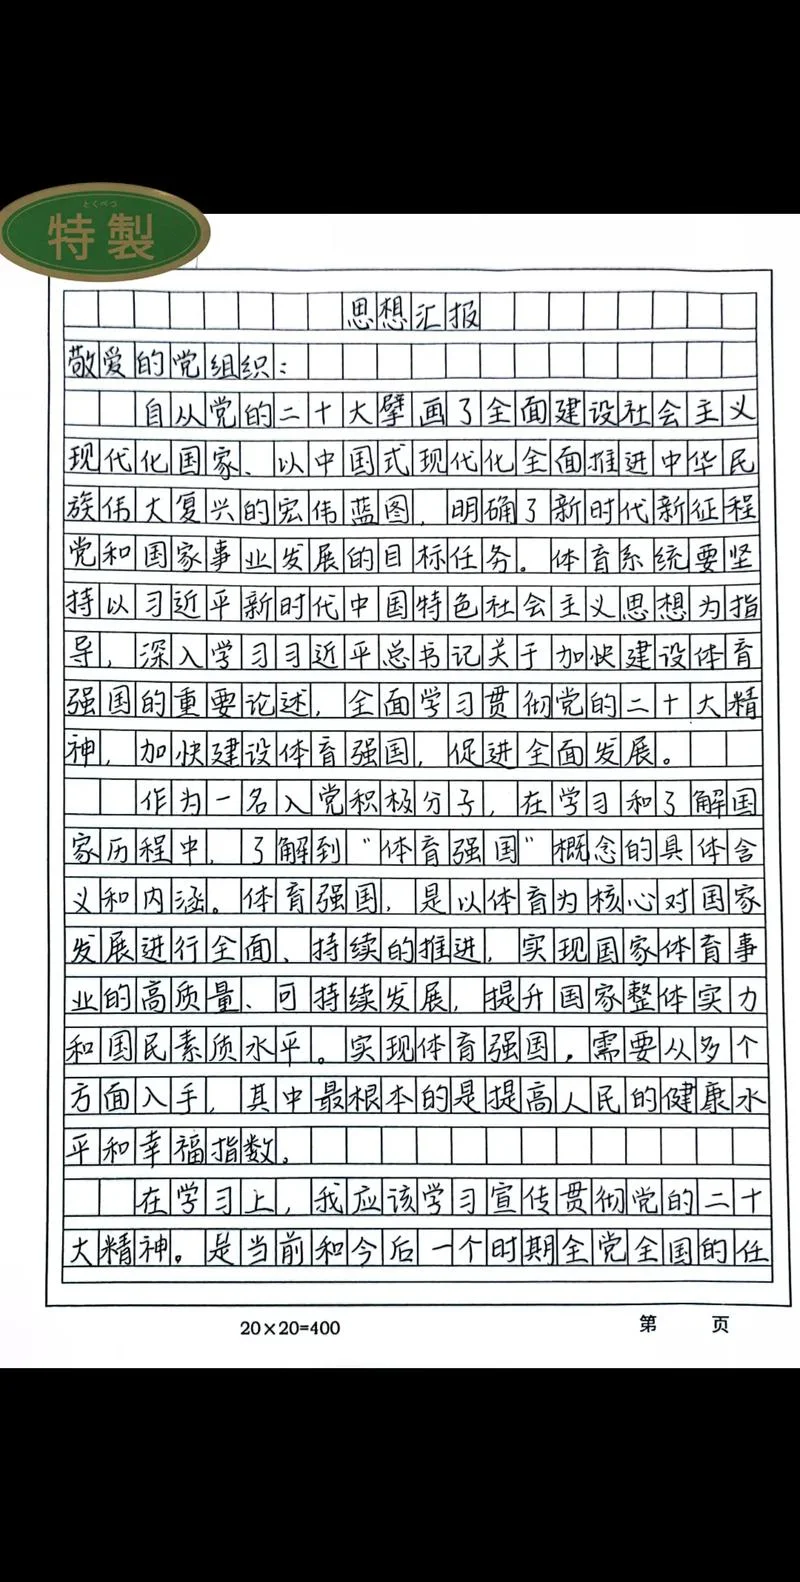 とくべつ
特製
思想汇报
敬爱的党组织：
自从党的二十大擘画了全面建设社会主义
现代化国家、以中国式现代化全面推进中华民
族伟大复兴的宏伟蓝图，明确了新时代新征程
党和国家事业发展的目标任务。体育系统要坚
持以习近平新时代中国特色社会主义思想为指
导，深入学习习近平总书记关于加快建设体育
强国的重要论述，全面学习贯彻党的二十大精
神，加快建设体育强国，促进全面发展。
作为一名入党积极分子，在学习和了解国
家历程中，了解到“体育强国”概念的具体含
义和内涵。体育强国，是以体育为核心对国家
发展进行全面、持续的推进，实现国家体育事
业的高质量、可持续发展，提升国家整体实力
和国民素质水平。实现体育强国，需要从多个
方面入手，其中最根本的是提高人民的健康水
平和幸福指数。
在学习上，我应该学习宣传贯彻党的二十
大精神。是当前和今后一个时期全党全国的任
20×20=400 第 页